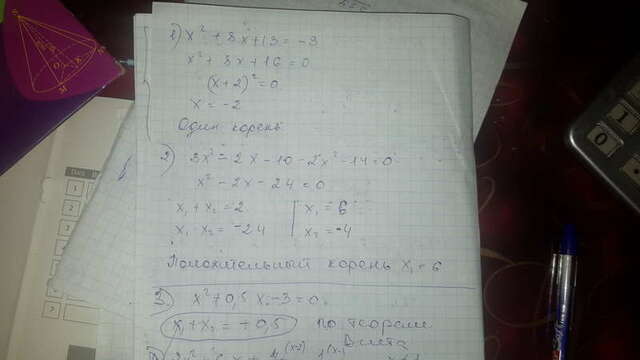 1) x² + 8x + 13 = -3
x² + 8x + 16 = 0
(x+2)² = 0
x = -2
Один корень
2) 3x² - 2x - 10 - 2x² - 14 = 0
x² - 2x - 24 = 0
x₁ + x₂ = 2 x₁ = 6
x₁ · x₂ = -24 x₂ = -4
Положительный корень x₁ = 6
3) x² + 0,5x - 3 = 0
x₁ + x₂ = -0,5 по теореме
Виета